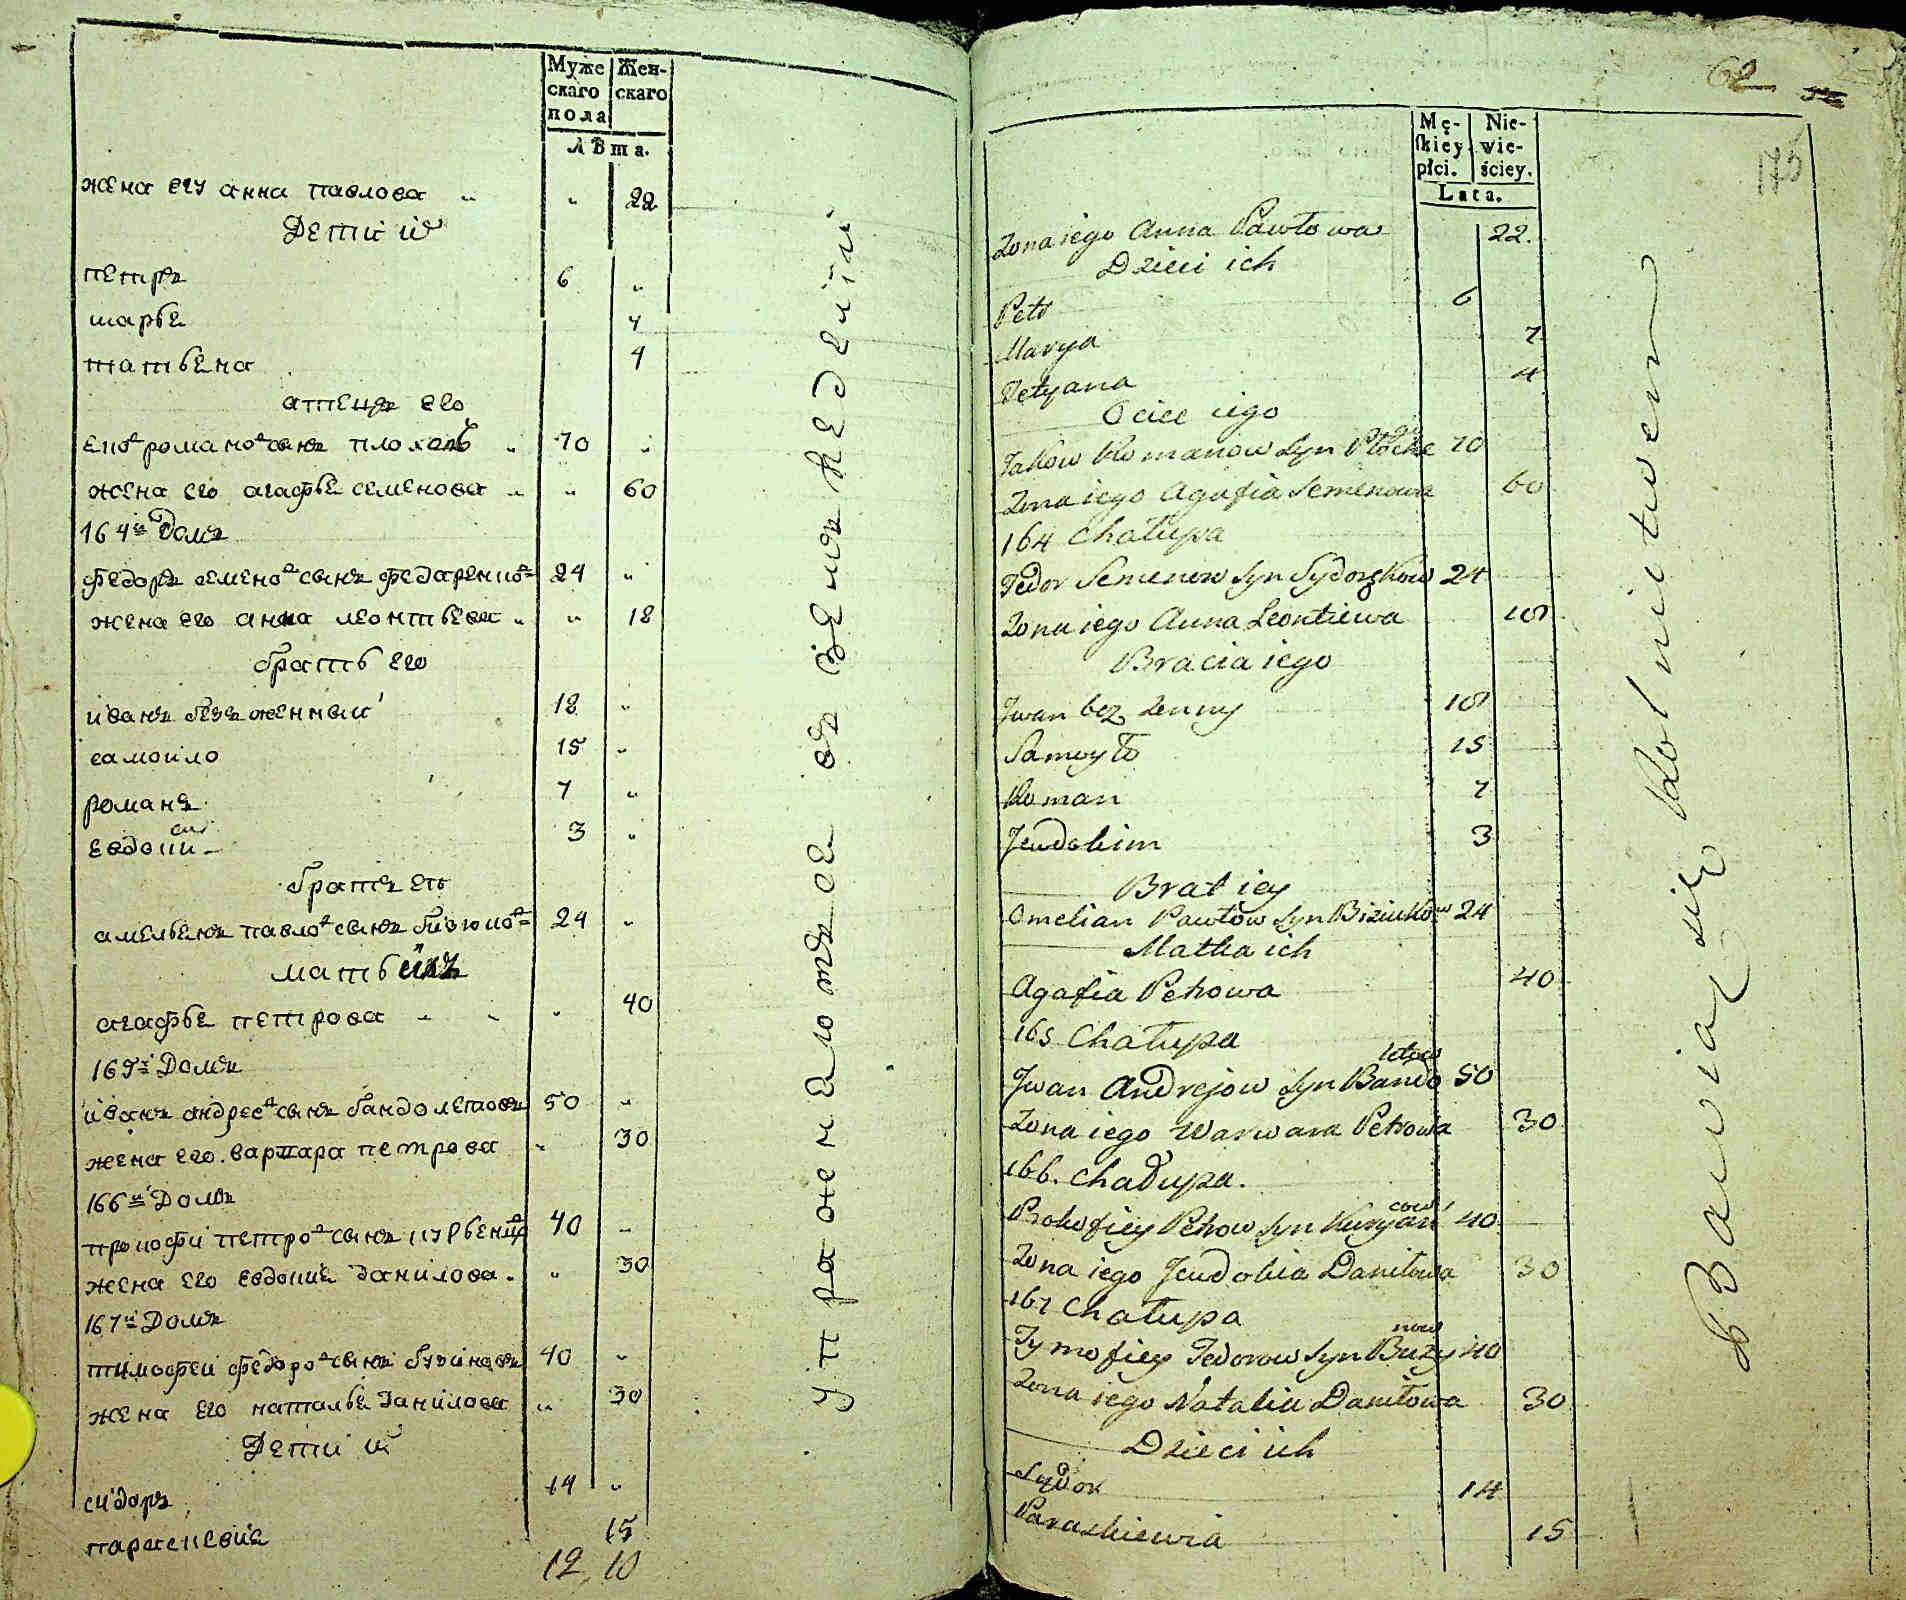 Муже
скаго
пола
Жен-
скаго
лѣта.
жена его анна павлова 22
Дети их
петръ 6
марье 7
татьена 4
атецъ его
романов сынъ плохов 70
жена его агафье семенова 60
164й Домъ
федоръ семенов сынъ федаренков 24
жена его анна леонтьева 18
брать его
иванъ безъ женный 18
самойло 15
романъ 7
Евдоким 3
братъ ее
амельенъ павлов сынъ бизюков 24
мать ихъ
агафье петрова 40
165й Домъ
иванъ андреев сынъ бандолетовъ 50
жена его варвара петрова 30
166й Домъ
прокофи петров сынъ курьенцов 40
жена его евдокиа данилова 30
167й Домъ
тимофей федоров сынъ бузиновъ 40
жена его наталье данилова 30
Дети их
сидоръ 14
параскевиа 15
12, 10
упражнеаютъсе въ земледелии
62
175
Mę-
skiey
płci.
Nie-
wie-
ściey.
Lata.
Zona iego Anna Pawłowa 22.
Dzieci ich
Petr 6
Marya 7
Tetyana 4
Ociec iego
Jakow Romanow Syn 70
Zona iego Agafia Semenowa 60
164 Chałupa
Fedor Semenow Syn Sydorskow 24
Zona iego Anna Leontiewa 18
Bracia iego
Jwan bez zenny 18
Samoyło 15
Roman 7
Jeudokim 3
Brat iey
Omelian Pawłow Syn Biziukow 24
Matka ich
Agafia Petrowa 40
165 Chałupa
Jwan Andrejow Syn Bandoletow 50
Zona iego Warwara Petrowa 30
166. Chałupa.
Prokofiey Petrow Syn Kuryancow 40
Zona iego Jeudokia Daniłowa 30
167 Chałupa
Tymofiey Fedorow Syn Buzynow 40
Zona iego Natalia Daniłowa 30
Dzieci ich
Sydor 14
Paraskiewia 15
Bawią się Rolnictwem